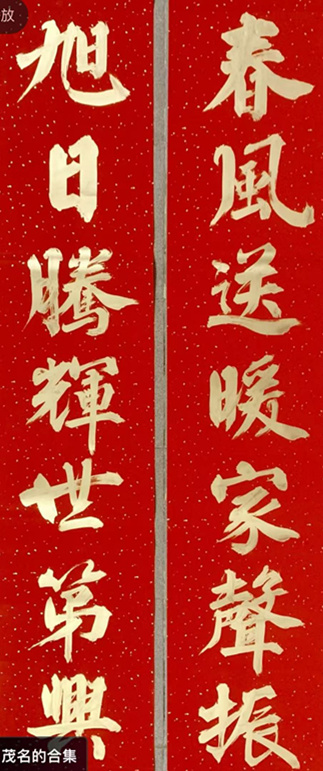 春風送暖家聲振
旭日騰輝世第興
放
茂名的合集